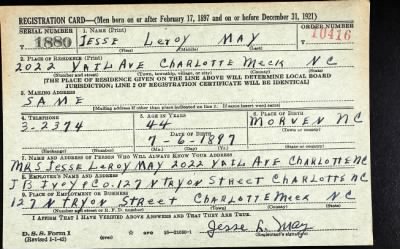 REGISTRATION CARD—(Men born on or after February 17, 1897 and on or before December 31, 1921)
SERIAL NUMBER 1. NAME (Print) ORDER NUMBER
1880 JESSE LEROY MAY 10416
(First) (Middle) (Last)
2. PLACE OF RESIDENCE (Print)
2022 VAIL AVE CHARLOTTE MECK NC
(Number and street) (Town, township, village, or city) (County) (State)
[THE PLACE OF RESIDENCE GIVEN ON THE LINE ABOVE WILL DETERMINE LOCAL BOARD
JURISDICTION; LINE 2 OF REGISTRATION CERTIFICATE WILL BE IDENTICAL]
3. MAILING ADDRESS
SAME
[Mailing address if other than place indicated on line 2. If same insert word same]
4. TELEPHONE 5. AGE IN YEARS 6. PLACE OF BIRTH
3-2374 44 MORVEN NC
DATE OF BIRTH
7-6-1897
7. NAME AND ADDRESS OF PERSON WHO WILL ALWAYS KNOW YOUR ADDRESS
MRS JESSE LEROY MAY 2022 VAIL AVE CHARLOTTE NC
8. EMPLOYER'S NAME AND ADDRESS
J B IVEY & CO. 127 N TRYON STREET CHARLOTTE NC
9. PLACE OF EMPLOYMENT OR BUSINESS
127 N TRYON STREET CHARLOTTE MECK NC
(Number and street or R. F. D. number) (Town) (County) (State)
I AFFIRM THAT I HAVE VERIFIED ABOVE ANSWERS AND THAT THEY ARE TRUE.
D. S. S. Form 1
(Revised 1-1-42) (over) 16-21630-1 Jesse L. May
(Registrant's signature)